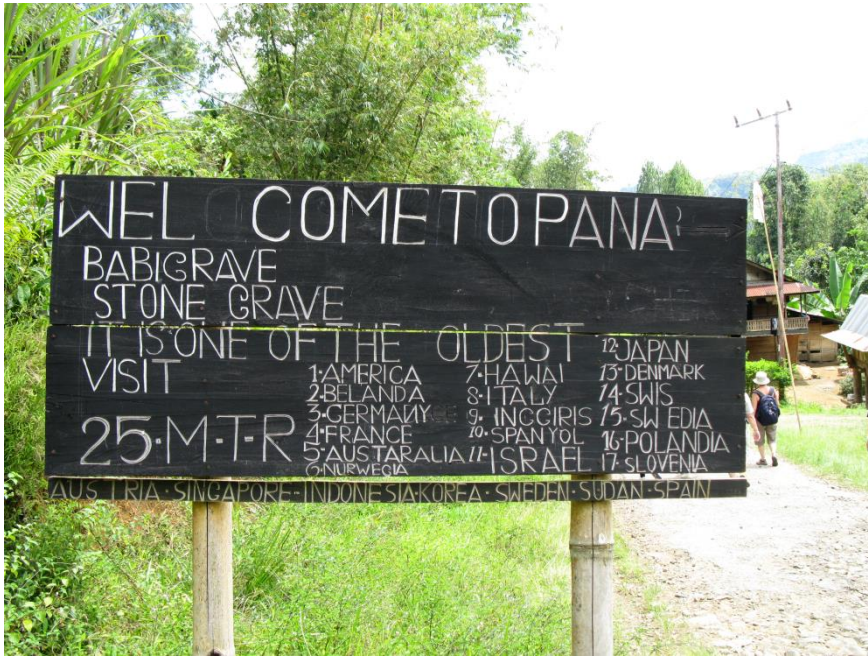 WEL COME TO PANA
BABIGRAVE
STONE GRAVE
IT IS ONE OF THE OLDEST
VISIT
25·M·T·R
1·AMERICA
2·BELANDA
3·GERMANY
4·FRANCE
5·AUSTARALIA
6·NURWEGIA
7·HAWAI
8·ITALY
9·INGGIRIS
10·SPANYOL
11·ISRAEL
12·JAPAN
13·DENMARK
14·SWIS
15·SWEDIA
16·POLANDIA
17·SLOVENIA
AUSTRIA·SINGAPORE-INDONESIA·KOREA·SWEDEN·SUDAN·SPAIN